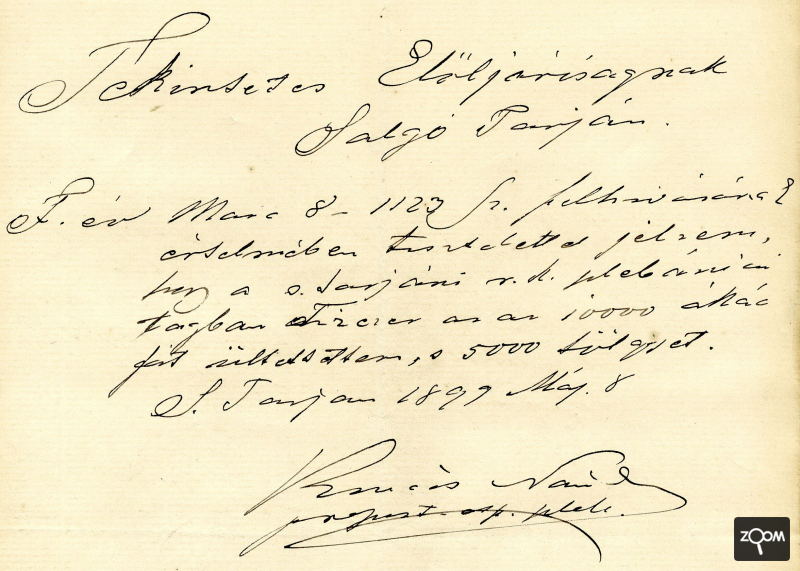 Tekintetes Elöljáróságnak
Salgó Tarján.
F. év Marc 8 - 1123 Sz. felhivásának
értelmében tisztelettel jelzem,
hogy a s. tarjáni r. k. plebániai
tagban Tizezer azaz 10000 ákác
fát ültettettem, s 5000 tölgyet.
S. Tarjan 1899 Máj. 8
Nánd
prépost esp. pleb.
ZOOM